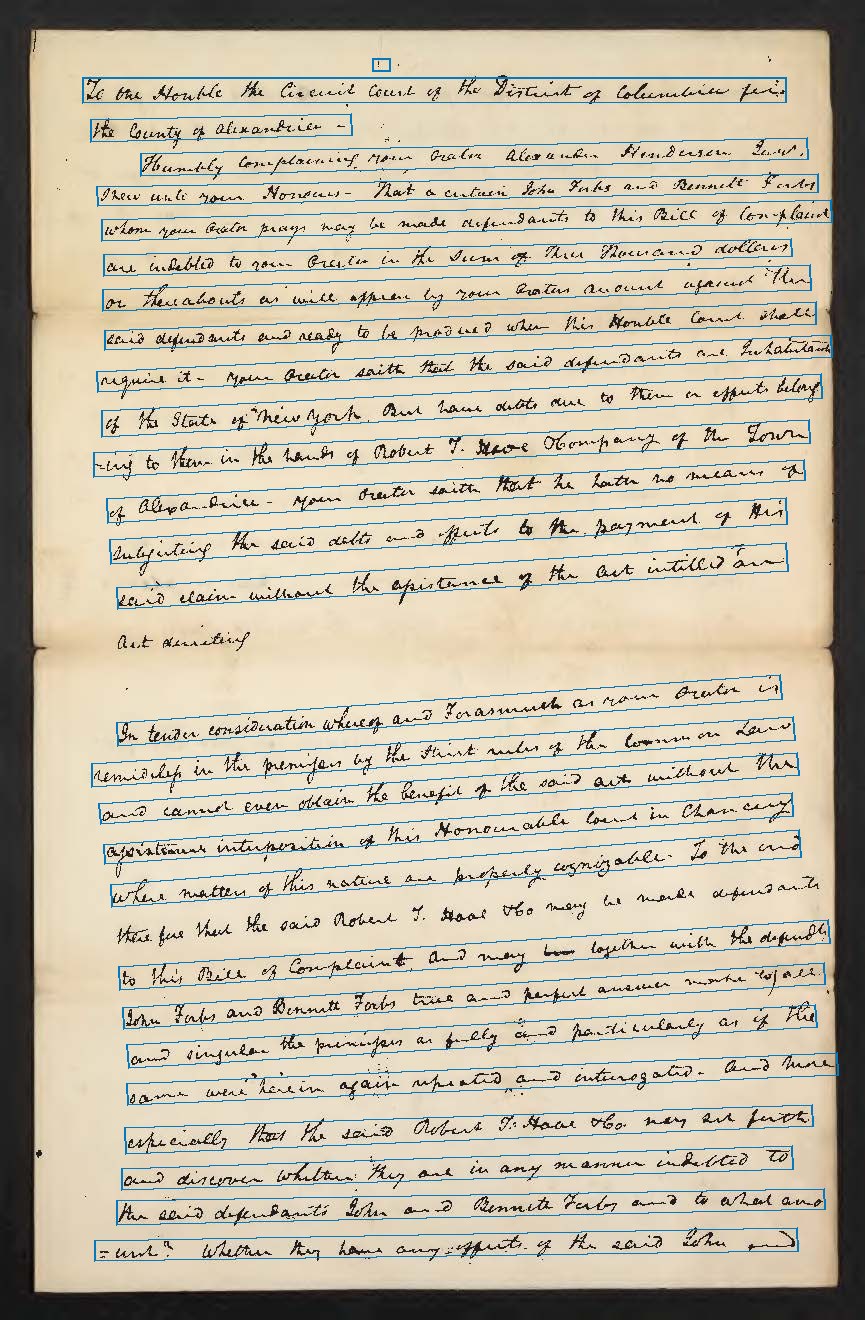 To the Honble the Circuit Court of the District of Columbia for
the County of Alexandria -
Humbly complaining your Orator Alexander Henderson Junr.
Shew unto your Honours - That a certain John Forbs and Bennett Forbs
whom your Orator prays may be made defendants to this Bill of Complaint
are indebted to your Orator in the Sum of Three Thousand dollars
or thereabouts as will appear by your Orators account against the
said defendants and ready to be produced when this Honble Court shall
require it - your Orator saith that the said defendants are Inhabitants
of the State of New York. But have debts due to them or effects belong
=ing to them in the hands of Robert T. Hooe & Company of the Town
of Alexandria - your Orator saith that he hath no means of
subjecting the said debts and effects to the payment of His
said claim without the assistance of the Act intitled "an
Act directing
In tender consideration whereof and Forasmuch as your Orator is
remidiless in the premisses by the strict rules of the Common Law
and cannot even obtain the benefit of the said act without the
assistance interposition of this Honourable Court in Chancery
where matters of this nature are properly cognizable. To the end
therefore that the said Robert T. Hooe & Co may be made defendants
to this Bill of Complaint, and may together with the defendts
John Forbs and Bennett Forbs true and perfect answer make to all
and singular the premisses as fully and particularly as if the
same were herein again repeated and interrogated - And more
especially that the said Robert T. Hooe & Co. may set forth
and discover whether they are in any manner indebted to
the said defendants John and Bennett Forbs and to what amo
=unt? Whether they have any effects of the said John and